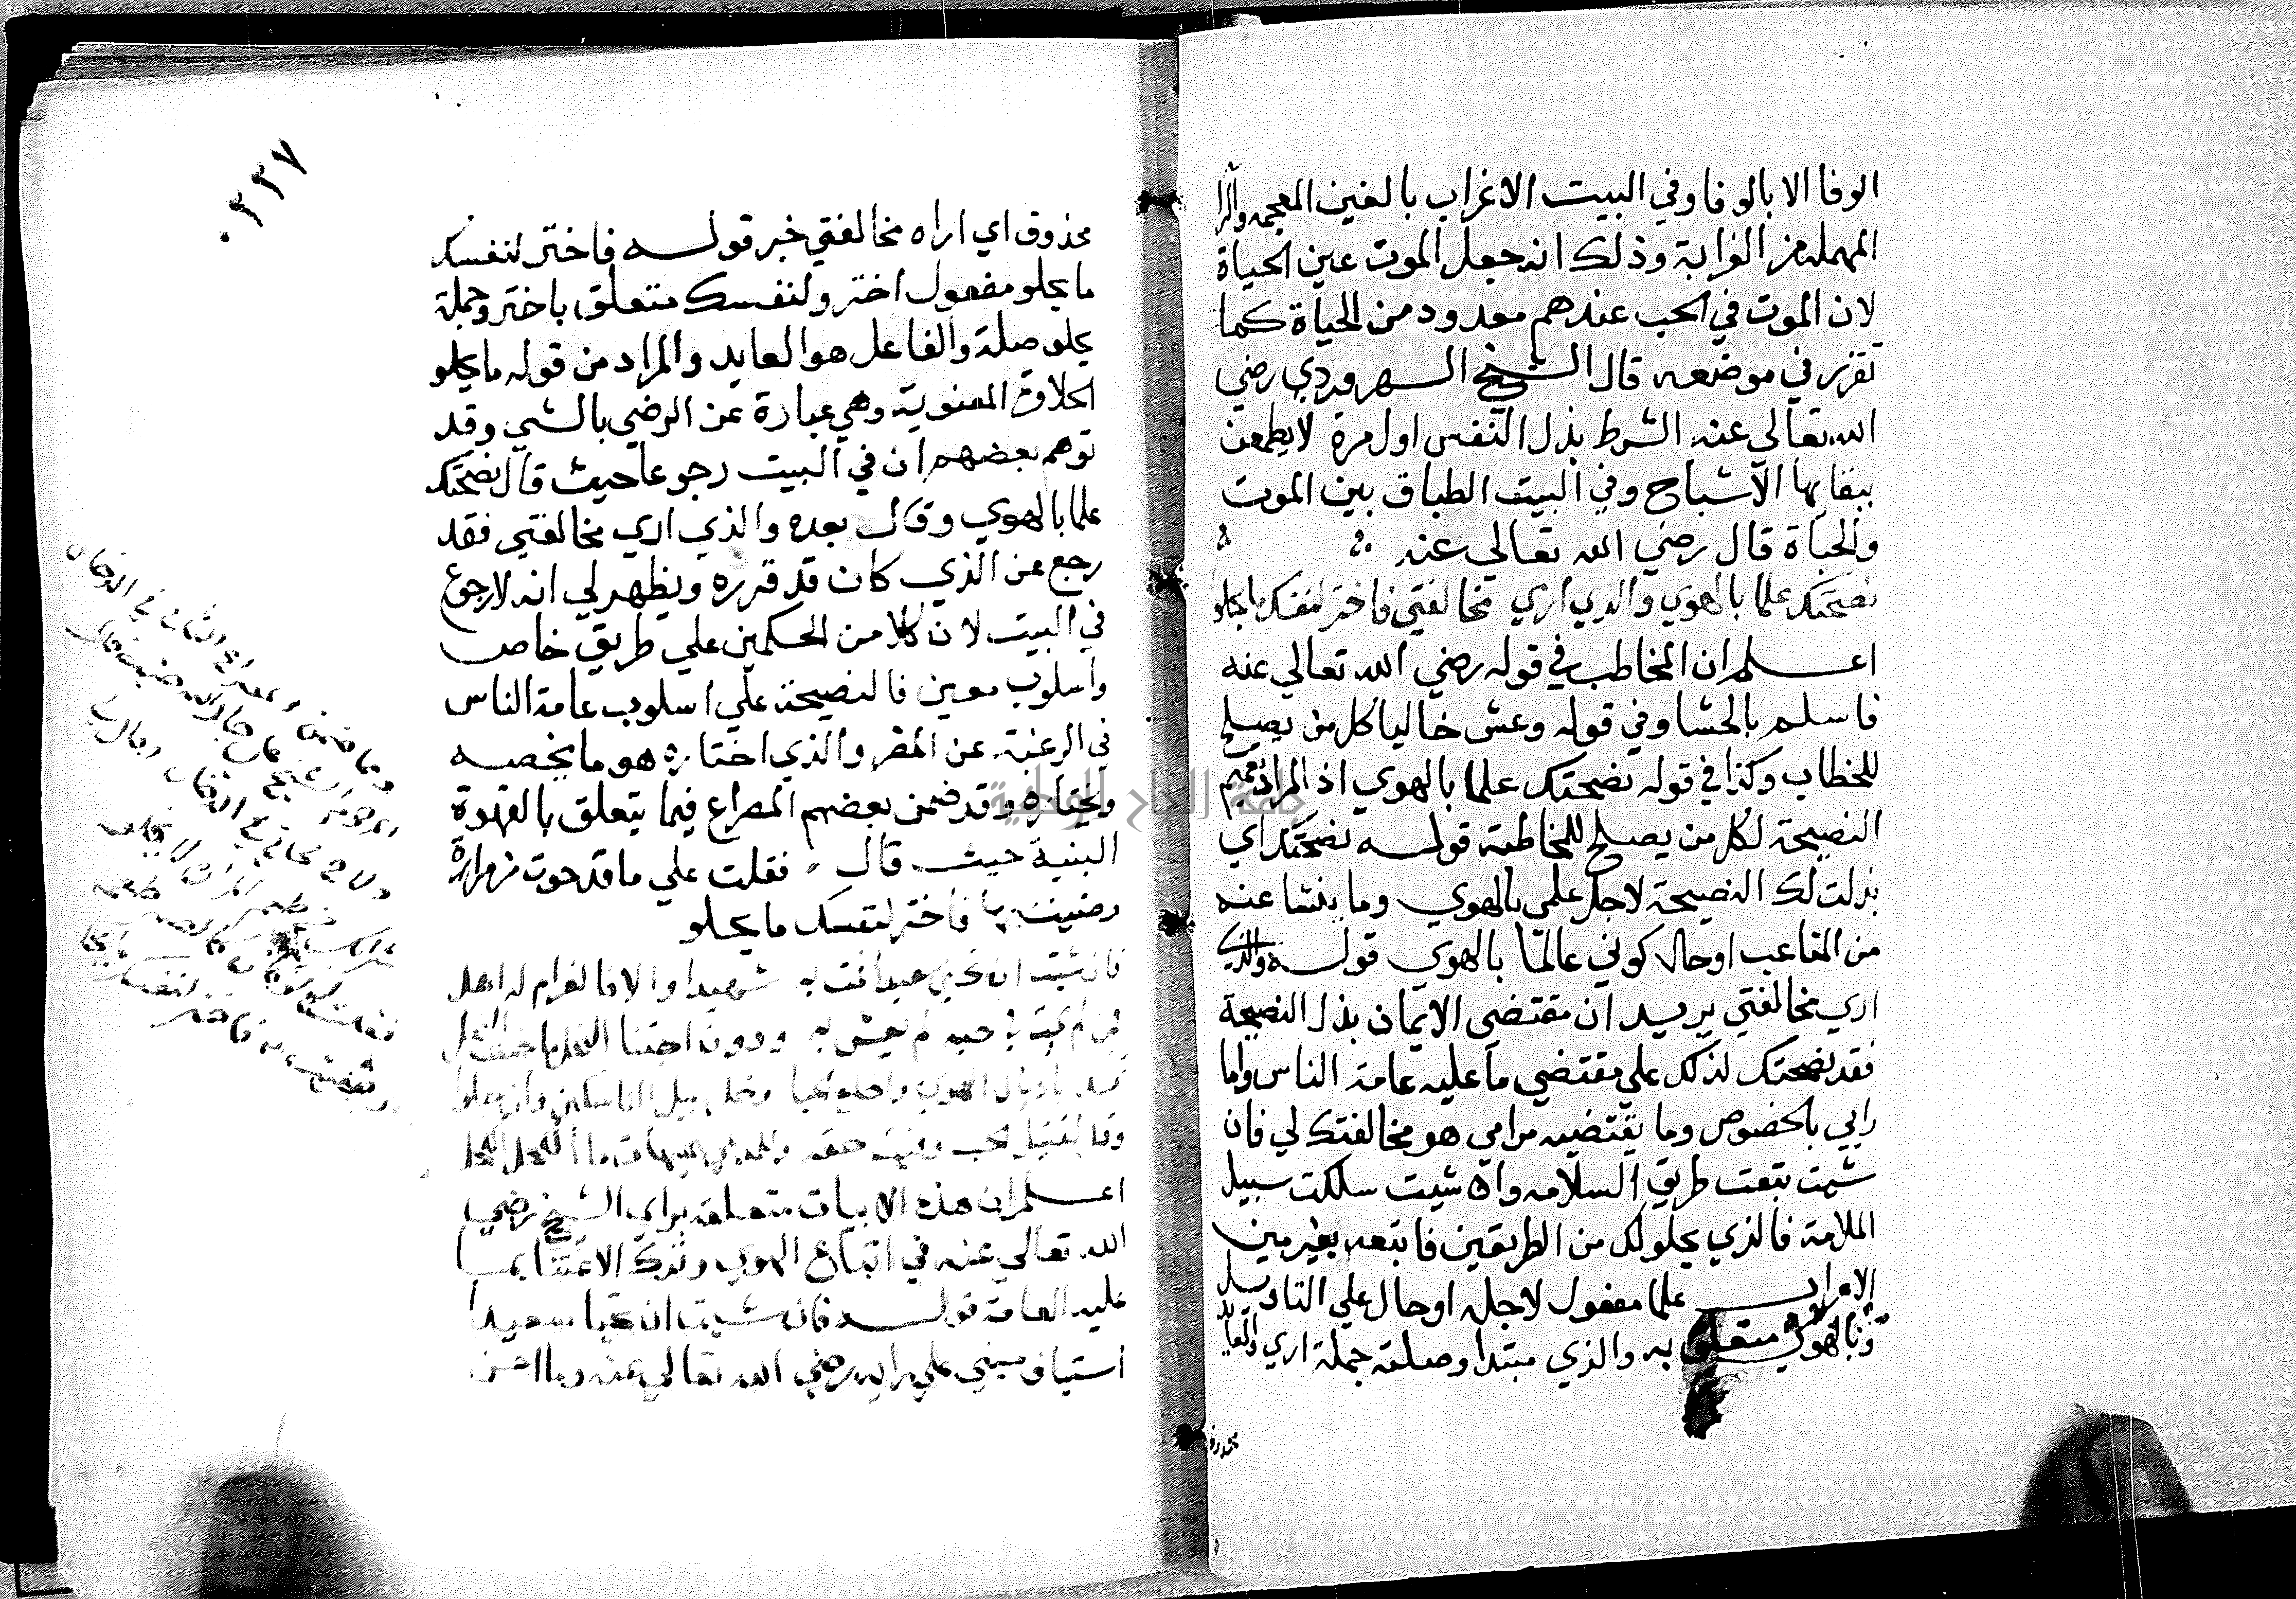 الوفا الا بالوفا وفي البيت الاغراب بالغين المعجمه والرا
المهمله من الغرابة وذلك انه جعل الموت عين الحياة
لان الموت في الحب عندهم معدود من الحياة كما
تقرر في موضعه قال الشيخ السهروردي رضي
الله تعالي عنه الشرط بذل النفس اول مرة لا يطمعن
ببقايها الاشباح وفي البيت الطباق بين الموت
والحياة قال رضي الله تعالي عنه
نصحتك علما بالهوي والذي اري مخالفتي فاختر لنفسك ما يحلو
اعلم ان المخاطب في قوله رضي الله تعالي عنه
فاسلم بالحشا وفي قوله وعش خاليا كل من يصلح
للخطاب وكذا في قوله نصحتك علما بالهوي اذ المراد تعميم
النصيحة لكل من يصلح للمخاطبة قوله نصحتك اي
بذلت لك النصيحة لاجل علمي بالهوي وما ينشا عنه
من المتاعب او حال كوني عالما بالهوي قوله والذي
اري مخالفتي يريد ان مقتضي الايمان بذل النصيحة
فقد نصحتك لذلك علي مقتضي ما عليه عامة الناس واما
رايي بالخصوص وما يقتضيه مرامي هو مخالفتك لي فان
شيت تبعت طريق السلامه وان شيت سلكت سبيل
الملامة فالذي يحلو لك من الطريقين فاتبعه بغير مين
الاعراب علما مفعول لاجله او حال علي التاويل
وبالهوي متعلق به والذي مبتدا وصلته جملة اري والعايد
محذوف
٢٢٧
محذوف اي اراه مخالفتي خبر قوله فاختر لنفسك
ما يحلو مفعول اختر ولنفسك متعلق باختر وجملة
يحلو صلة والفاعل هو العايد والمراد من قوله ما يحلو
الحلاوة المعنوية وهي عبارة عن الرضي بالشي وقد
توهم بعضهم ان في البيت رجوعا حيث قال نصحتك
علما بالهوي وقال بعده والذي اري مخالفتي فقد
رجع عن الذي كان قد قرره ويظهر لي انه لا رجوع
في البيت لان كلا من الحكمين علي طريق خاص
واسلوب معين فالنصيحة علي اسلوب عامة الناس
في الرغبة عن المضر والذي اختاره هو ما يخصه
ويختاره وقد ضمن بعضهم المصراع فيما يتعلق بالقهوة
البنية حيث قال فقلت علي ما قد حوت من مرارة
رضيت بها فاختر لنفسك ما يحلو
فان شيت ان تحيي سعيدا فمت به شهيدا والا فالغرام له اهل
فمن لم يمت في حبه لم يعش به ودون اجتنا النحل ما جنت النحل
تمسك باذيال الهوي واخلع الحيا وخل سبيل الناسكين وان جلوا
وقل لقتيل الحب وفيت حقه وللمدعي هيهات ما الكحل الكحل
اعلم ان هذه الابيات متعلقه براي الشيخ رضي
الله تعالي عنه في اتباع الهوي وترك الاعتنا بما
عليه العامة قوله فان شيت ان تحيا سعيدا
استيناف مبني علي رايه رضي الله تعالي عنه وما احسن